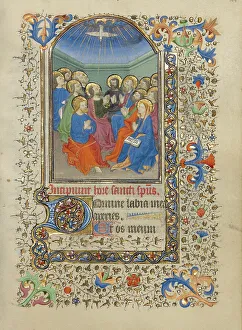 Incipiunt hore sancti sp̃us.
Domine labia mea
aperies. Et os meum